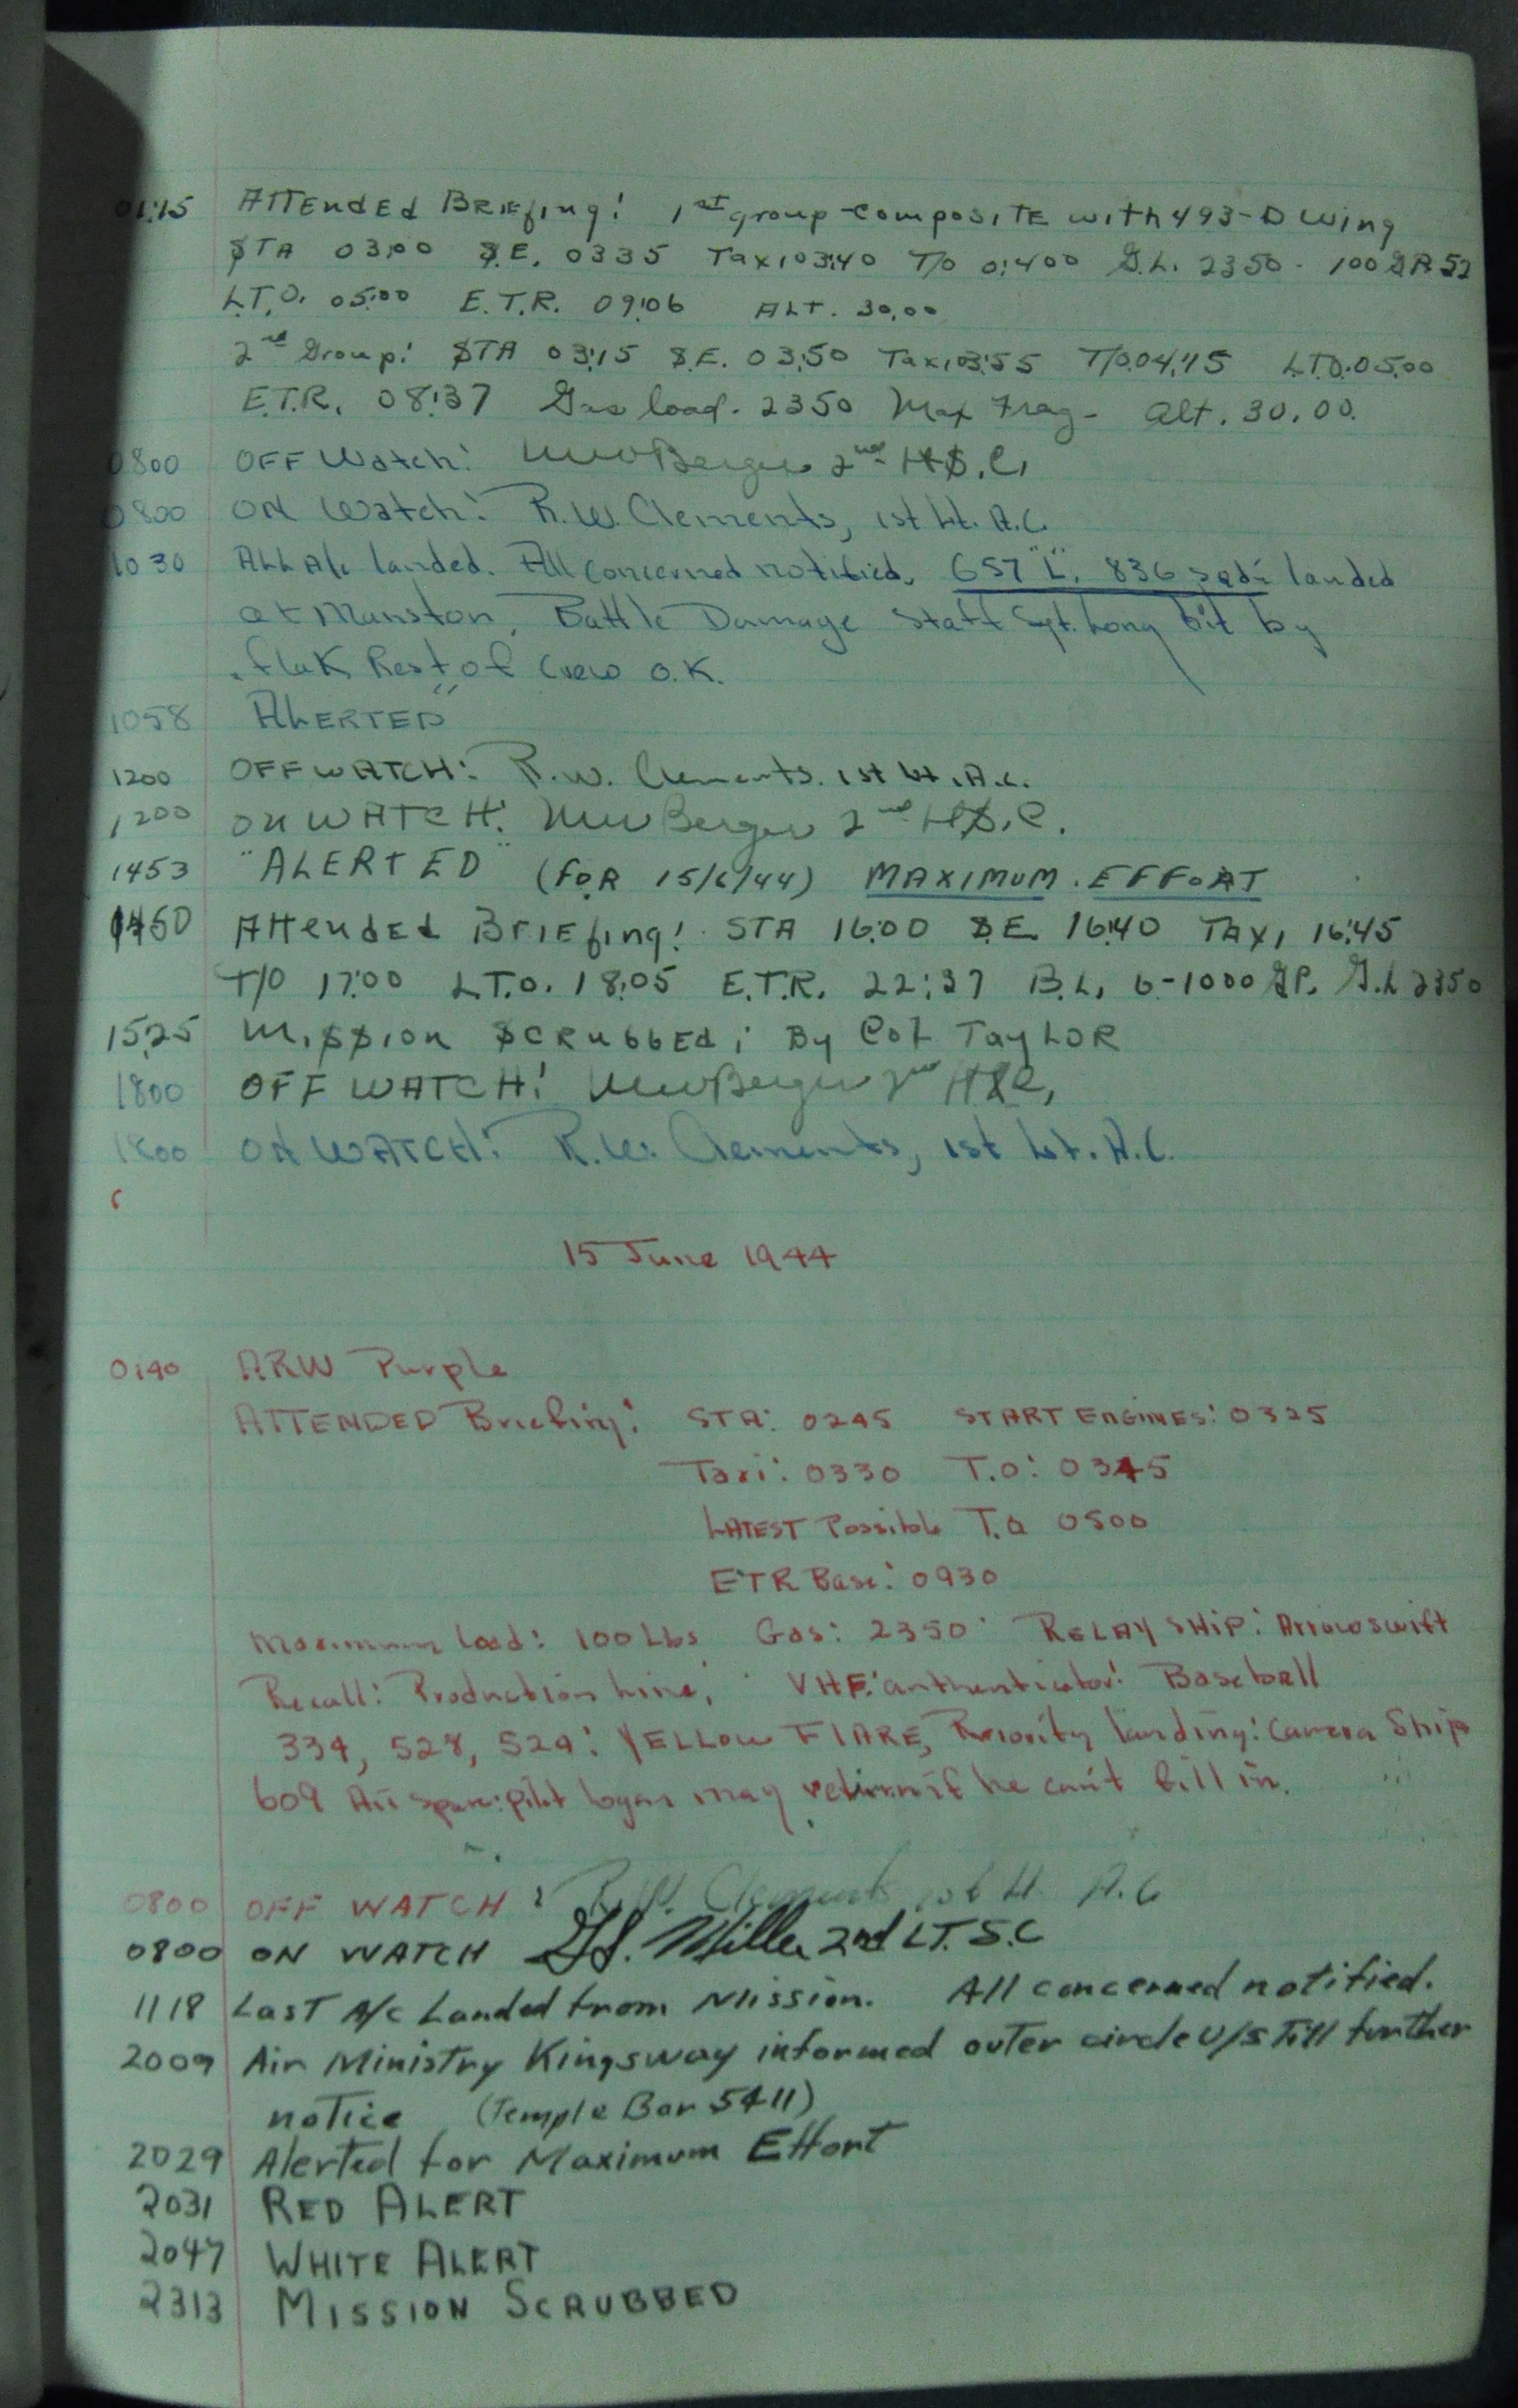 01:15 Attended Briefing! 1st group-composite with 493-D Wing
STA 03:00 S.E. 0335 Taxi 03:40 T/O 0:400 G.L. 2350 - 100 52
L.T.O. 05:00 E.T.R. 09:06 ALT. 30,00
2nd Group: STA 03:15 S.E. 03:50 Taxi 03:55 T/O 04:15 L.T.O. 05:00
E.T.R. 08:37 Gas load. 2350 Max Frag- Alt. 30,00.
0800 OFF Watch: Berger 2nd Lt S.C.
0800 ON Watch: R.W. Clements, 1st Lt. A.C.
1030 ALL A/c landed. All concerned notified. 657 "L". 836 sqdn landed
at Manston, Battle Damage Staff Sgt. Long hit by
flak Rest of Crew O.K.
1058 "ALERTED"
1200 OFF WATCH: R.W. Clements. 1st Lt. A.C.
1200 ON WATCH: Berger 2nd Lt S.C.
1453 "ALERTED" (FOR 15/6/44) MAXIMUM EFFORT
1450 Attended Briefing! STA 16:00 S.E. 16:40 TAXI 16:45
T/O 17:00 L.T.O. 18:05 E.T.R. 22:37 B.L. 6-1000 G.P. G.L 2350
15,25 Mission Scrubbed; By Col Taylor
1800 OFF WATCH! Berger 2nd Lt S.C.
1800 ON WATCH: R.W. Clements, 1st Lt. A.C.
15 June 1944
0140 ARW Purple
ATTENDED Briefing: STA: 0245 START ENGINES: 0325
Taxi: 0330 T.O: 0345
LATEST Possible T.O 0500
ETR Base: 0930
Maximum load: 100 Lbs Gas: 2350 RELAY SHIP: Arrowswift
Recall: Production Line; VHF: authenticator: Baseball
334, 528, 529: YELLOW FLARE, Priority landing: Camera Ship
609 Air Spare: pilot Logan may return if he can't fill in.
0800 OFF WATCH: R.W. Clements 1st Lt. A.C
0800 ON WATCH Miller 2nd LT. S.C
1118 Last A/c Landed from Mission. All concerned notified.
2009 Air Ministry Kingsway informed outer circle U/s Till further
notice (Temple Bar 5411)
2029 Alerted for Maximum Effort
2031 RED ALERT
2047 WHITE ALERT
2313 MISSION SCRUBBED